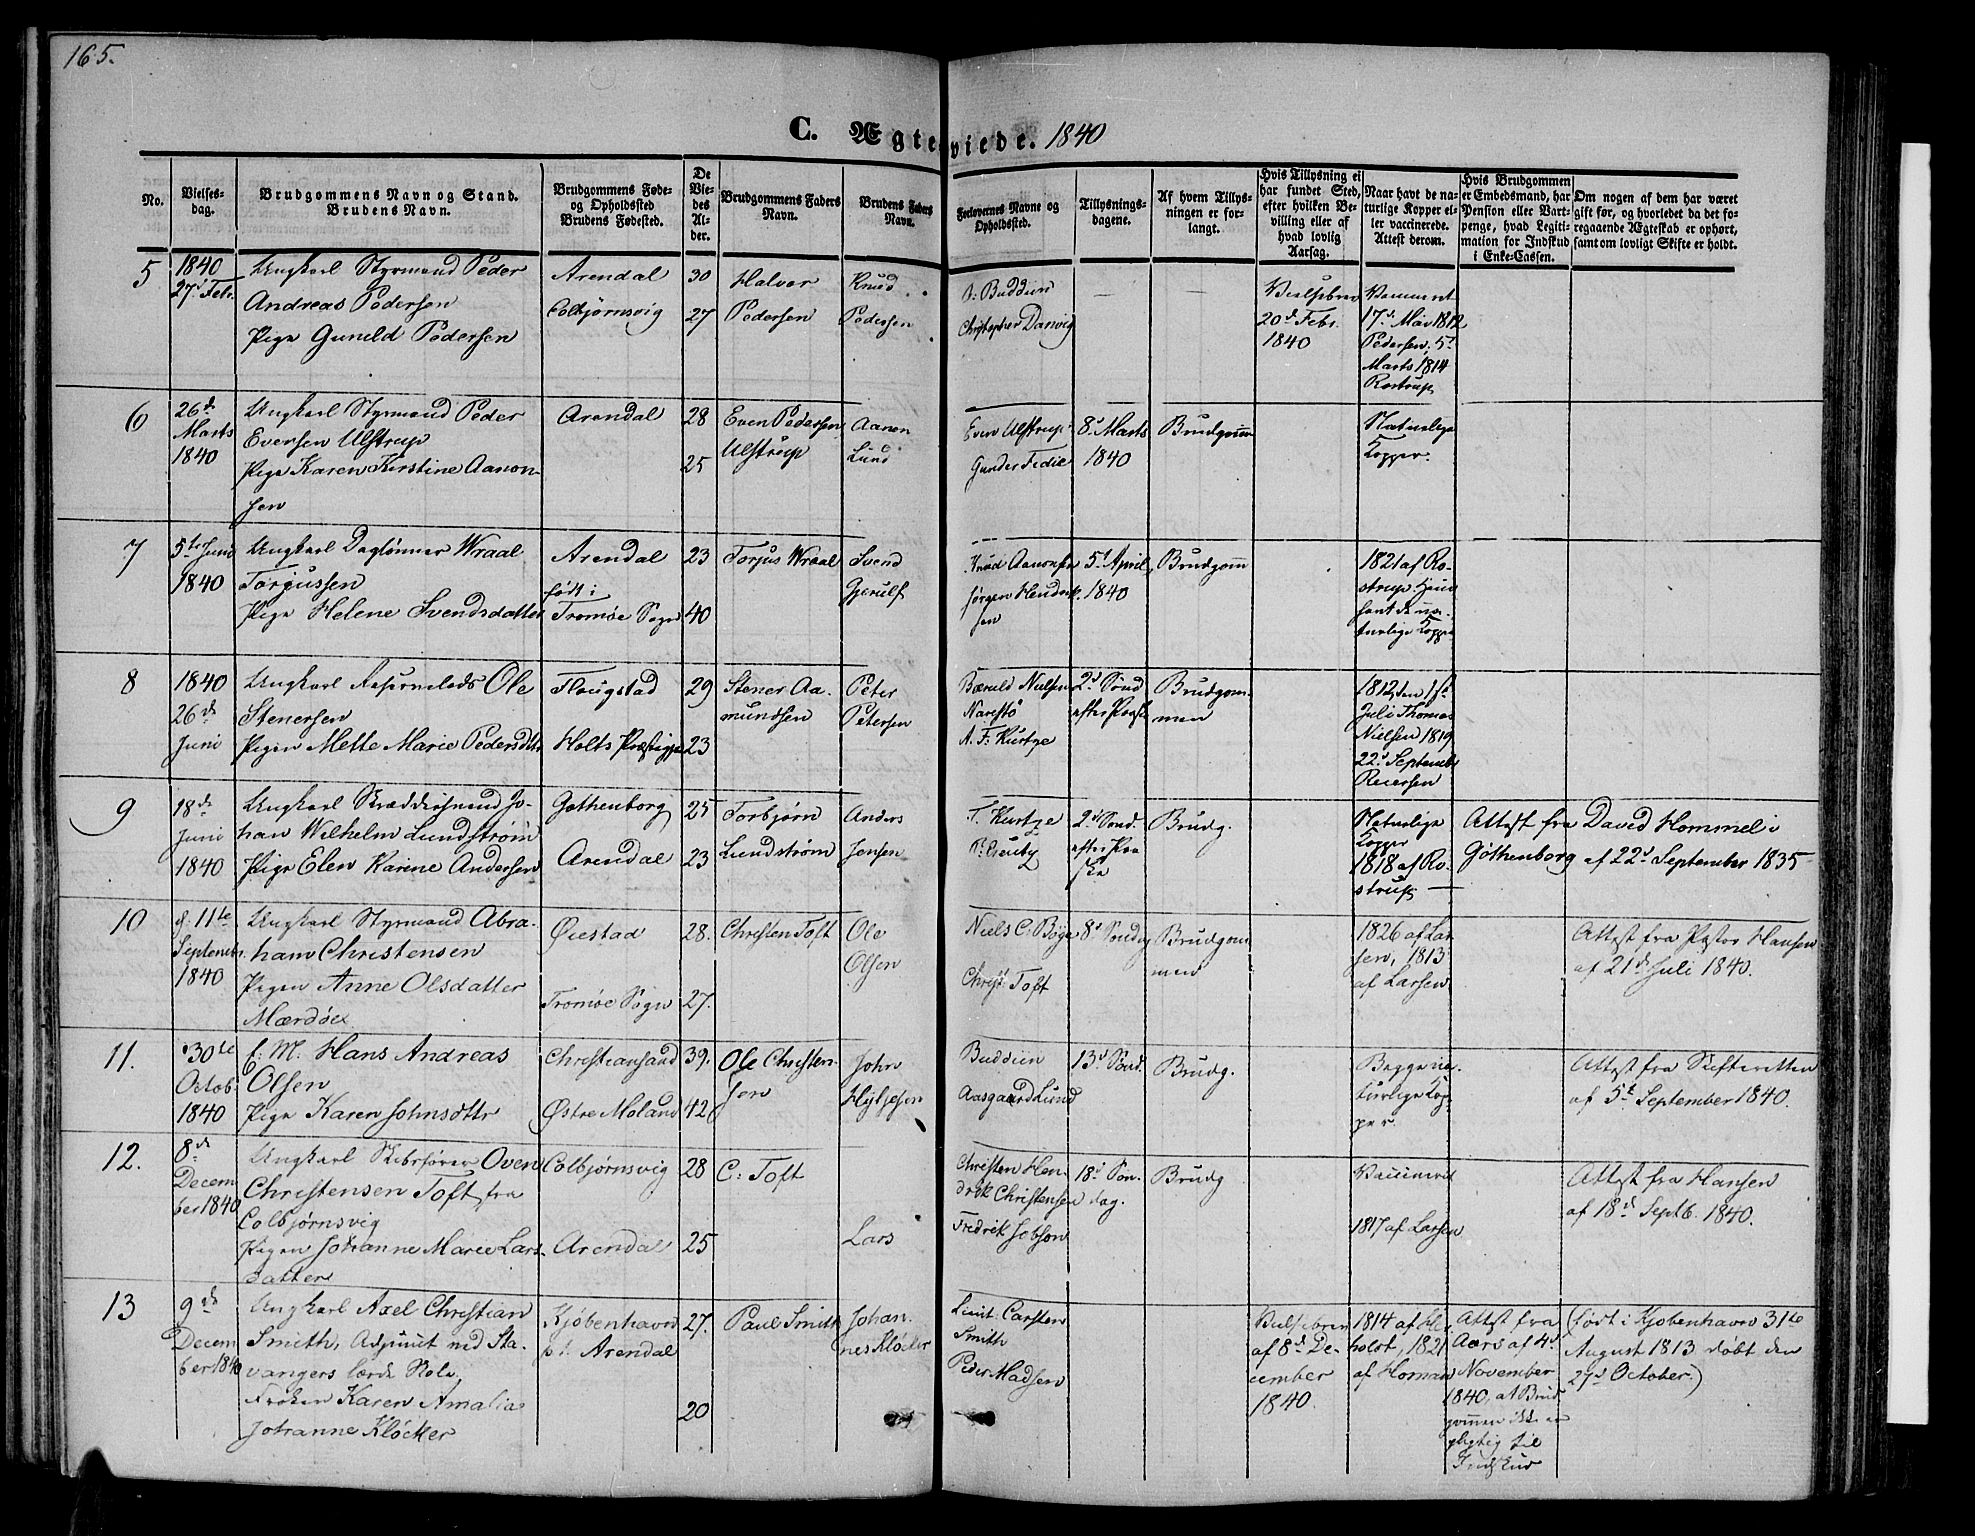 165.
C. Ægteviede. 1840
No.
Vielses-
dag.
Brudgommens Navn og Stand.
Brudens Navn.
Brudgommens Føde-
og Opholdssted
Brudens Fødested.
De
Vie-
des
Al-
der.
Brudgommens Faders
Navn.
Brudens Faders
Navn.
Forlovernes Navne og
Opholdssted.
Tillysnings-
dagene.
Af hvem Tillys-
ningen er for-
langt.
Hvis Tillysning ei
har fundet Sted,
efter hvilken Be-
villing eller af
hvad lovlig
Aarsag.
Naar havt de na-
turlige Kopper el-
ler vaccinerede.
Attest derom.
Hvis Brudgommen
er Embedsmand, har
Pension eller Vart-
penge, hvad Legiti-
mation for Indskud
i Enke-Cassen.
Om nogen af dem har været
gift før, og hvorledet da det fo-
regaaende Ægteskab er ophørt,
samt om lovligt Skifte er holdt.
5
1840
27d Febr.
Ungkarl Styrmand Peder
Andreas Pedersen
Pige Gunild Pedersen
Arendal
Colbjørnsvig
30
27
Halvor
Pedersen
Knud
Pedersen
Buddien
Christopher Danvig
Vielsebrev
20d Febr.
1840
17d Mai 1812
Pedersen, 5t
Marts 1814
Rostrup
6
26d
Marts
1840
Ungkarl Styrmand Peder
Evensen Ulstrup
Pige Karen Kirstine Aanon-
sen
Arendal
28
25
Even Pedersen
Ulstrup
Aanon
Lund
Even Ulstrup
Gunder Fedie
8d Marts
1840
Brudgom
Naturlige
Kopper.
7
5te Juni
1840
Ungkarl Daglønner Wraal
Torgussen
Pige Helene Svendsdatter
Arendal
født i
Tromøe Sogn
23
40
Torjus Wraal
Svend
Gjerulf
Knud Aanonsen
Jørgen Hendrik-
sen
5t April
1840
Brudgom
1821 af Ro-
strup. Hun
havt de na-
turlige Kopper
8
1840
26d
Juni
Ungkarl Ole
Stenersen
Pigen Mette Marie Pedersdtr
Flougstad
Holts Præstegjæ
29
23
Stener Aa-
mundsen
Peter
Petersen
Nielsen
Narestø
A. F. Kurtze
2d Sønd
efter Paaske
Brudgom-
men
1812 den 1ste
Juli Thomas
Nielsen 1819
22d Septembr
Reiersen
9
18d
Juni
1840
Ungkarl Skræddersvend Jo-
han Wilhelm Lundstrøm
Pige Elen Karine Andersen
Gothenborg
Arendal
25
23
Torbjørn
Lundstrøm
Anders
Jensen
T. Kurtze
2d Sønd.
efter Paa-
ske
Brudg.
Naturlige
Kopper
1818 af Ro-
strup
Attest fra David Hommel i
Gøthenborg af 22d September 1835
10
d. 11te
Septembr.
1840
Ungkarl Styrmand Abra-
ham Christensen
Pigen Anne Olsdatter
Mærdøe
Øiestad
Tromøe Sogn
28.
27.
Christen Toft
Ole
Olsen
Niels C. Bøge
Christ. Toft
8d Søndag
Brudgom-
men
1826 af Lar-
sen, 1813
af Larsen
Attest fra Pastor Hansen
af 21d Juli 1840.
11.
30te
Octob.
1840
E. M. Hans Andreas
Olsen
Pige Karen Johnsdttr
Christiansand
Østre Moland
39.
42
Ole Christen-
sen
John
Hyljesen
Buddien
Aasgaard Lund
13d Sønd.
Brudg.
Begge na-
turlige Kop-
per.
Attest fra Skifteretten
af 5t September 1840.
12.
8d
Decem
ber 1840
Ungkarl Skibsfører Oven
Christensen Toft fra
Colbjørnsvig
Pigen Johanne Marie Lars-
datter
Colbjørnsvig
Arendal
28
25
C: Toft
Lars
Christen Hen-
drik Christensen
Fredrik Jebsen
18d Søn-
dag.
Brudg
Vaccineret
1817 af Larsen
Attest fra Hansen
af 18d Septb. 1840.
13
9d
Decem
ber 1840
Ungkarl Axel Christian
Smith, Adjunct ved Sta-
vangers lærde Skole
Frøken Karen Amalia
Johanne Kløcker
Kjøbenhavn
Arendal
27.
20
Paul Smith
Johan-
nes Kløcker
Lieut. Carsten
Smith
Peder Madsen
Vielsebrev
af 8d De-
cember
1840.
1814 af
holdt, 1821
af Homan
Attest fra
Aars af 4d
November
1840, at Brud
gommen ikke er
pligtig til
Indskud
(født i Kjøbenhavn 31te
August 1813 døbt den
27d October.)